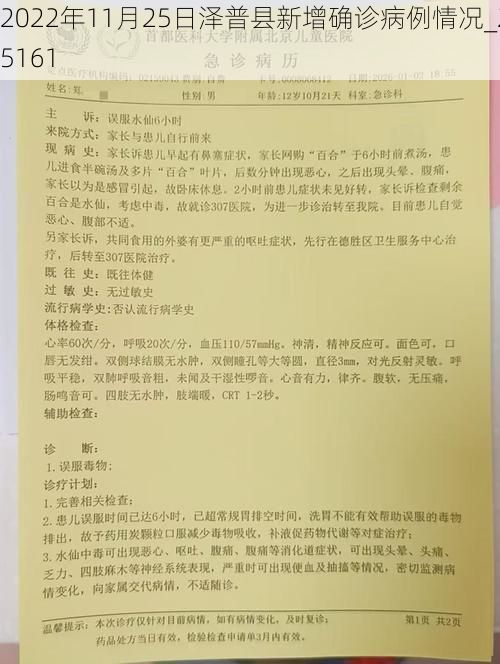 2022年11月25日泽普县新增确诊病例情况_
5161
首都医科大学附属北京儿童医院
急诊病历
姓名:郑
性别:男
年龄:12岁10月21天 科室:急诊科
主 诉:误服水仙6小时
来院方式:家长与患儿自行前来
现 病 史:家长诉患儿早起有鼻塞症状,家长网购“百合”于6小时前煮汤,患
儿进食半碗汤及多片“百合”叶片,后数分钟出现恶心,之后出现头晕、腹痛,
家长以为是感冒引起,故卧床休息。2小时前患儿症状未见好转,家长诉检查剩余
百合是水仙,考虑中毒,故就诊307医院,为进一步诊治转至我院。目前患儿自觉
恶心、腹部不适。
另家长诉,共同食用的外婆有更严重的呕吐症状,先行在德胜区卫生服务中心治
疗,后转至307医院治疗。
既 往 史:既往体健
过 敏 史:无过敏史
流行病学史:否认流行病学史
体格检查:
心率60次/分,呼吸20次/分,血压110/57mmHg。神清,精神反应可。面色可。口
唇无发绀。双侧球结膜无水肿,双侧瞳孔等大等圆,直径3mm,对光反射灵敏。呼
吸平稳,双肺呼吸音粗,未闻及干湿性啰音。心音有力,律齐。腹软,无压痛,
肠鸣音可。四肢无水肿,肢端暖,CRT 1-2秒。
辅助检查:
诊 断:
1.误服毒物;
诊疗计划:
1.完善相关检查;
2.患儿误服时间已达6小时,已超常规胃排空时间,洗胃不能有效帮助误服的毒物
排出,故予药用炭颗粒口服减少毒物吸收,补液促药物代谢等对症治疗;
3.水仙中毒可出现恶心、呕吐、腹痛、腹痛等消化道症状,可出现头晕、头痛、
乏力、四肢麻木等神经系统表现,严重时可出现便血及抽搐等情况,密切监测病
情变化,向家属交代病情,不适随诊。
温馨提示:本次诊疗仅针对目前病情,如有病情变化,及时复诊; 第1页 共2页
药品处方当日有效,检验检查申请单3月内有效。